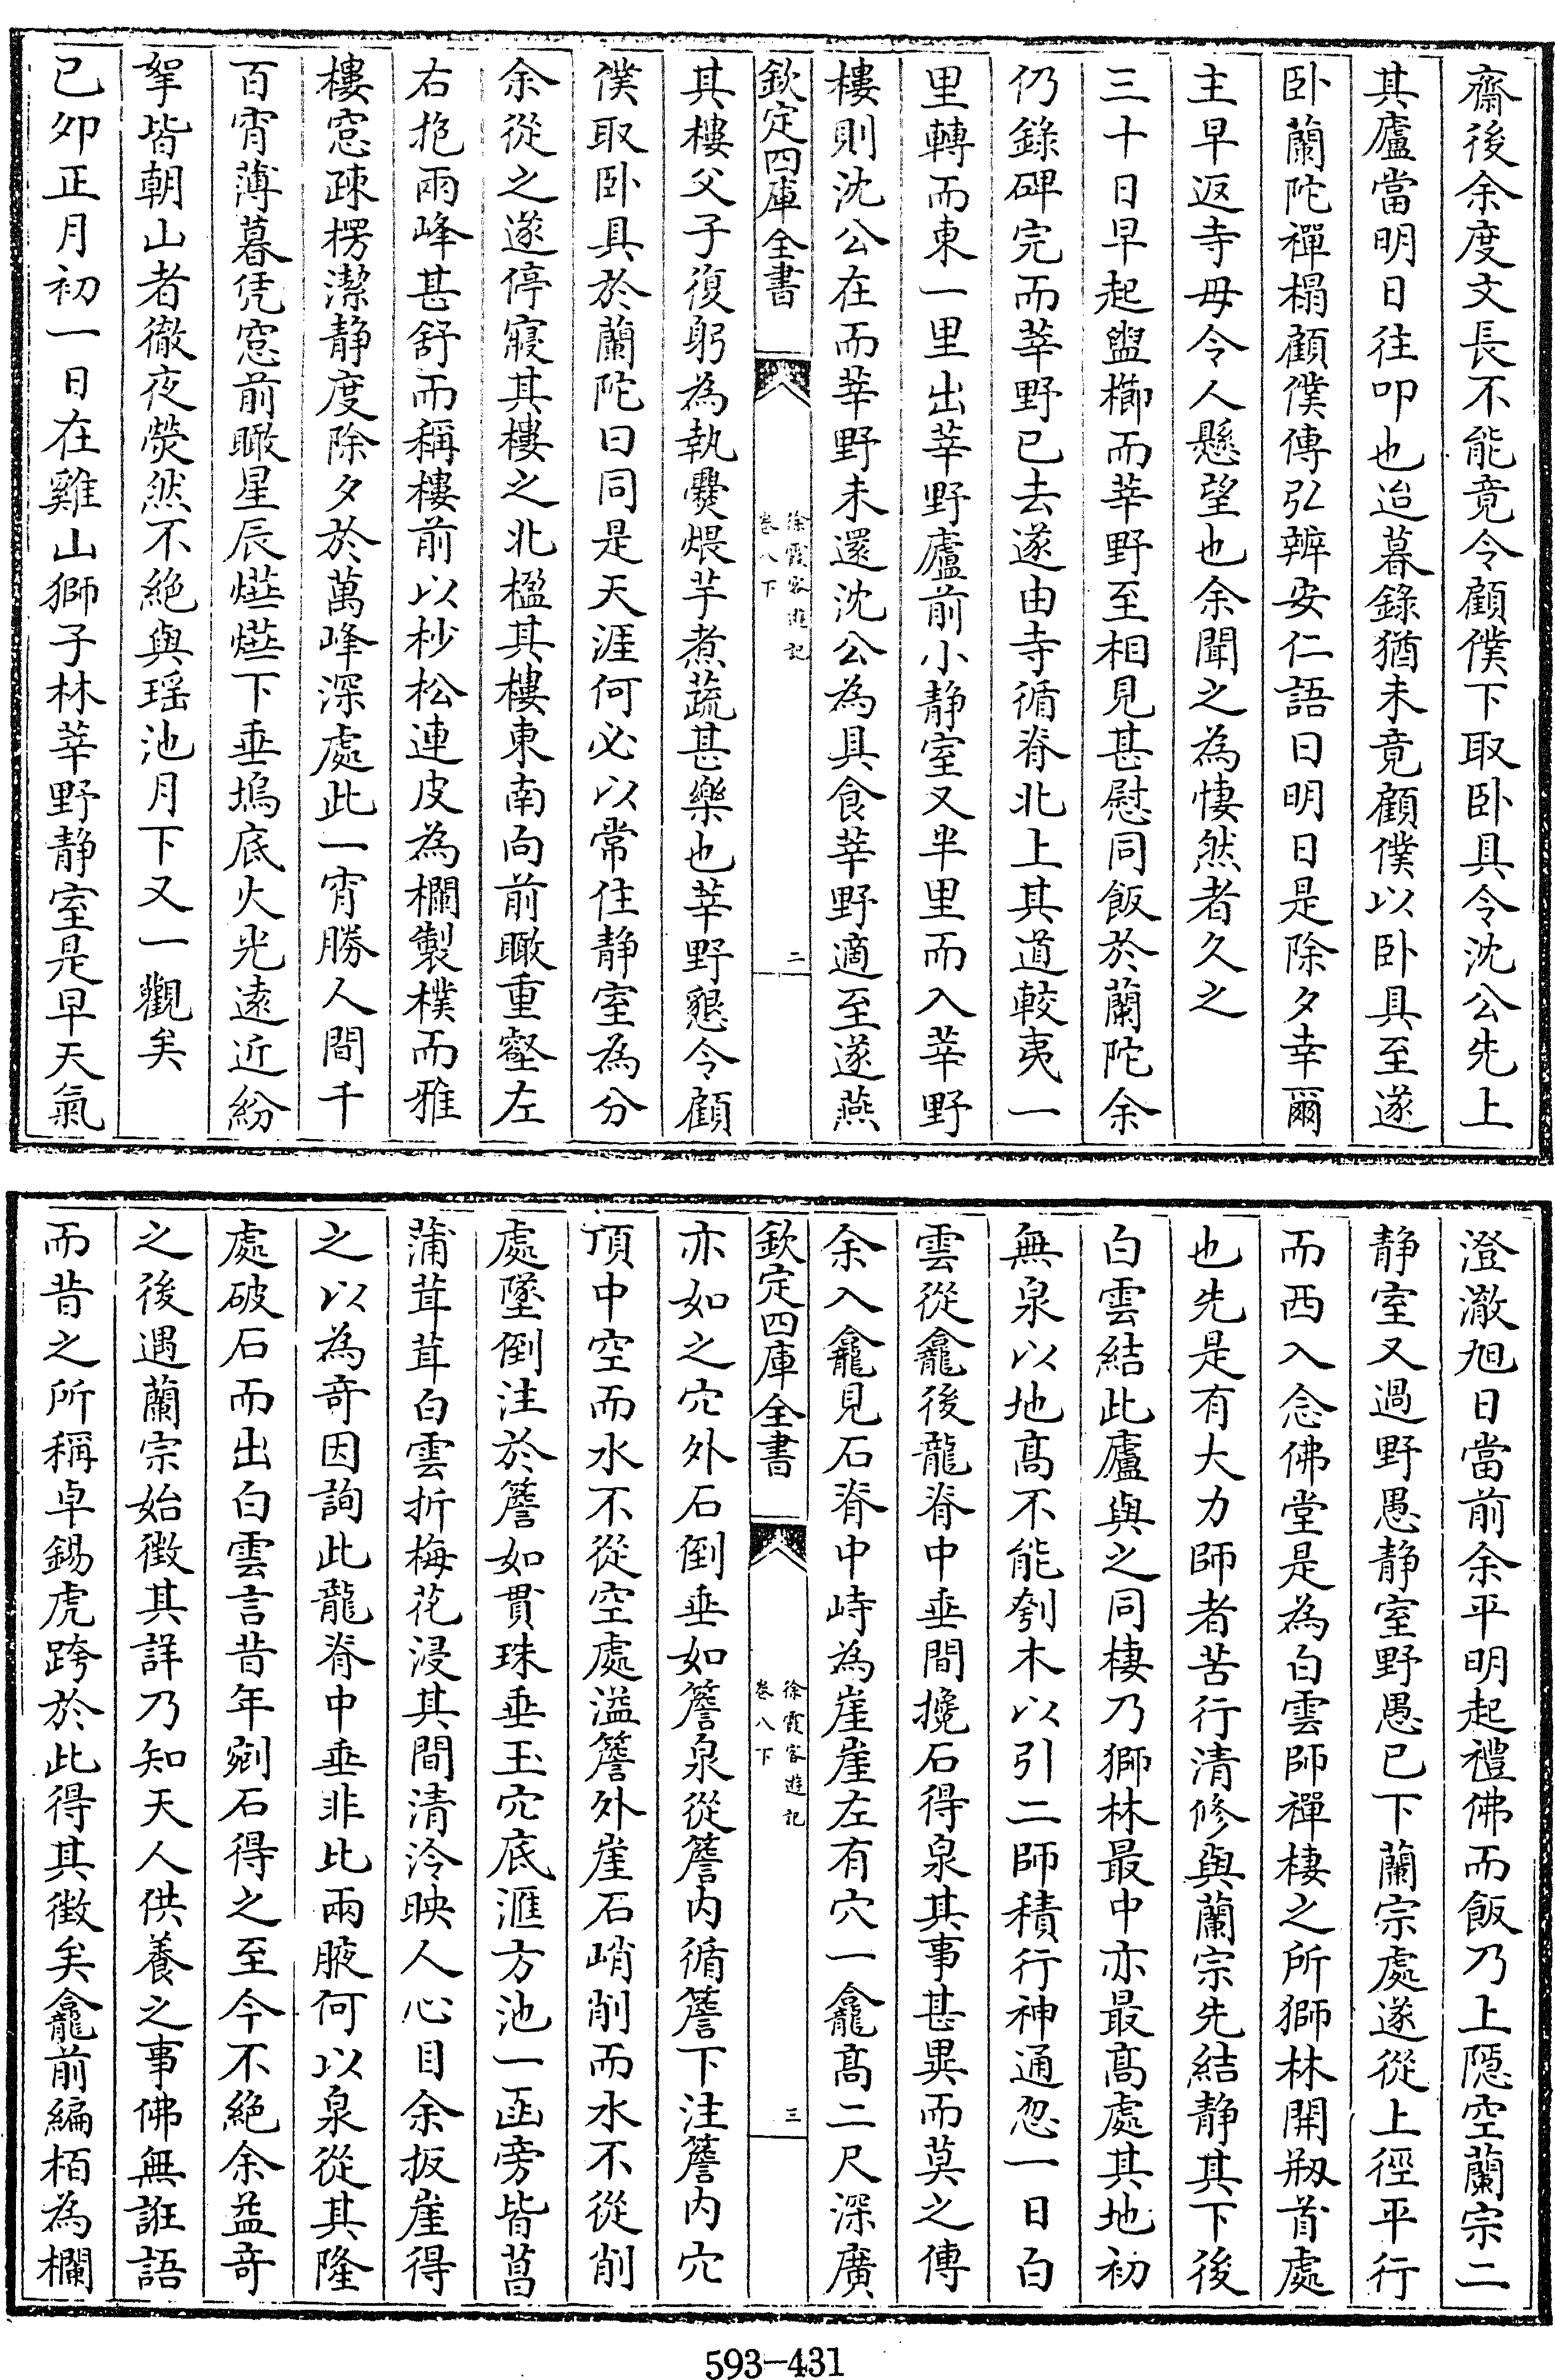 齋後余度文長不能竟令顧僕下取卧具令沈公先上
其廬當明日往叩也迨暮錄猶未竟顧僕以卧具至遂
卧蘭陀禪榻顧僕傳弘辨安仁語曰明日是除夕幸爾
主早返寺毋令人懸望也余聞之為悽然者久之
三十日早起盥櫛而莘野至相見甚慰同飯於蘭陀余
仍錄碑完而莘野已去遂由寺循脊北上其道較夷一
里轉而東一里出莘野廬前小静室又半里而入莘野
樓則沈公在而莘野未還沈公為具食莘野適至遂燕
欽定四庫全書
徐霞客遊記
卷八下
二
其樓父子復躬為執爨煨芋煮蔬甚樂也莘野懇令顧
僕取卧具於蘭陀曰同是天涯何必以常住静室為分
余從之遂停寢其樓之北楹其樓東南向前瞰重壑左
右抱兩峰甚舒而稱樓前以杪松連皮為欄製樸而雅
樓窓疎櫺潔静度除夕於萬峰深處此一宵勝人間千
百宵薄暮凭窓前瞰星辰燁燁下垂塢底火光遠近紛
挐皆朝山者徹夜熒然不絕與瑶池月下又一觀矣
己卯正月初一日在雞山獅子林莘野静室是早天氣
澄澈旭日當前余平明起禮佛而飯乃上隠空蘭宗二
静室又過野愚静室野愚已下蘭宗處遂從上徑平行
而西入念佛堂是為白雲師禪棲之所獅林開刱首處
也先是有大力師者苦行清修與蘭宗先結静其下後
白雲結此廬與之同棲乃獅林最中亦最高處其地初
無泉以地髙不能刳木以引二師積行神通忽一日白
雲從龕後龍脊中垂間攙石得泉其事甚異而莫之傳
余入龕見石脊中峙為崖崖左有穴一龕髙二尺深廣
欽定四庫全書
徐霞客遊記
卷八下
三
亦如之穴外石倒垂如簷泉從簷内循簷下注簷内穴
頂中空而水不從空處溢簷外崖石峭削而水不從削
處墜倒注於簷如貫珠垂玉穴底滙方池一函旁皆菖
蒲茸茸白雲折梅花浸其間清泠映人心目余扳崖得
之以為竒因詢此龍脊中垂非比兩腋何以泉從其隆
處破石而出白雲言昔年剜石得之至今不絕余益竒
之後遇蘭宗始徵其詳乃知天人供養之事佛無誑語
而昔之所稱卓錫虎跨於此得其徴矣龕前編栢為欄
593-431